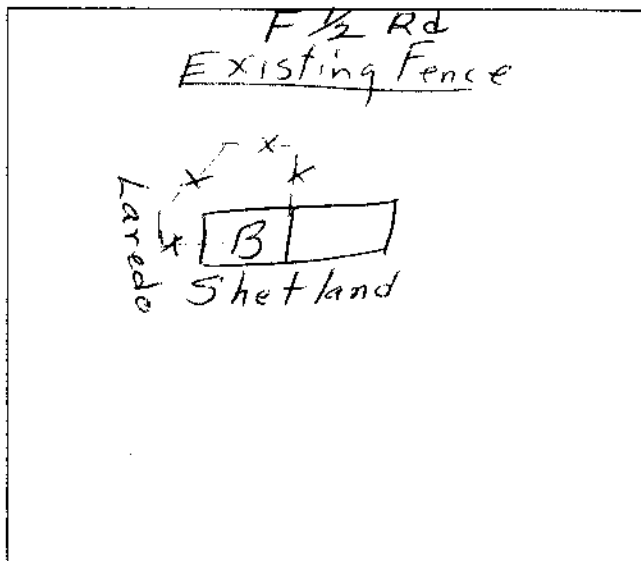 F 1/2 Rd
Existing Fence
x
x
x
x
Laredo
B
Shetland